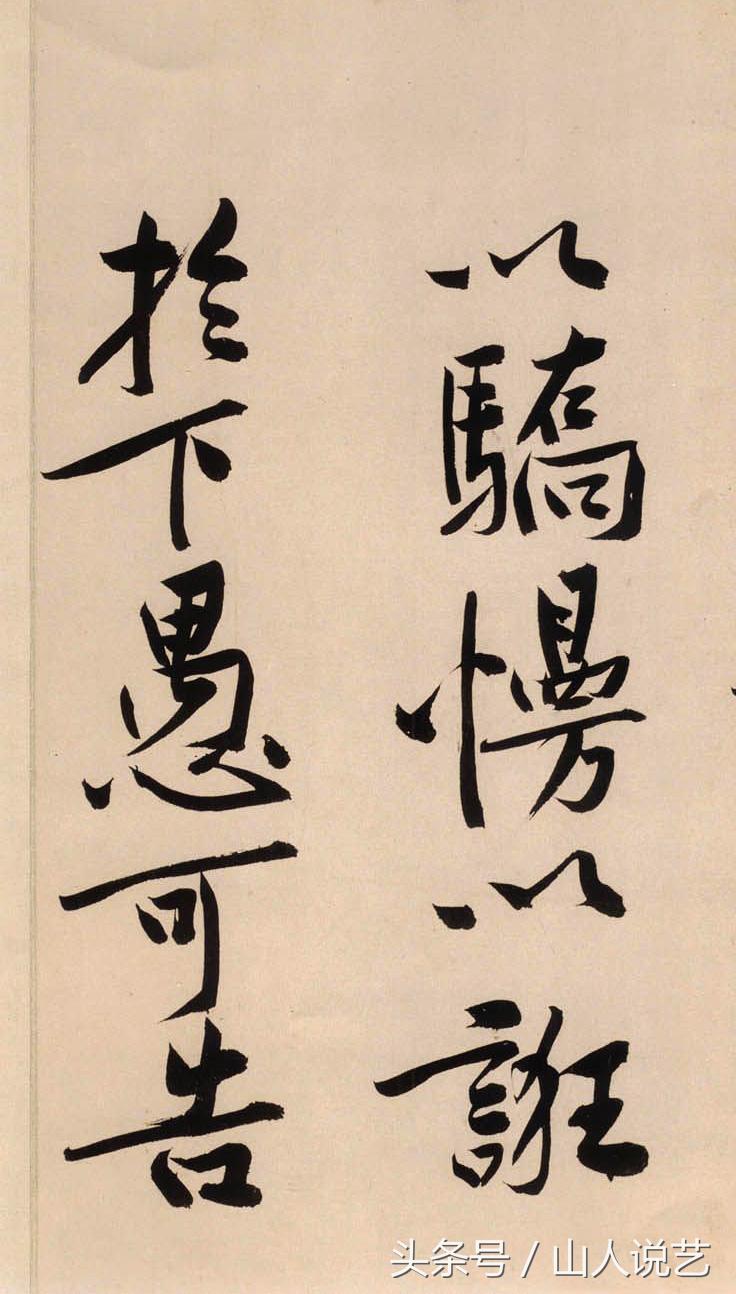 以驕慢以誑
於下愚可告
头条号 / 山人说艺